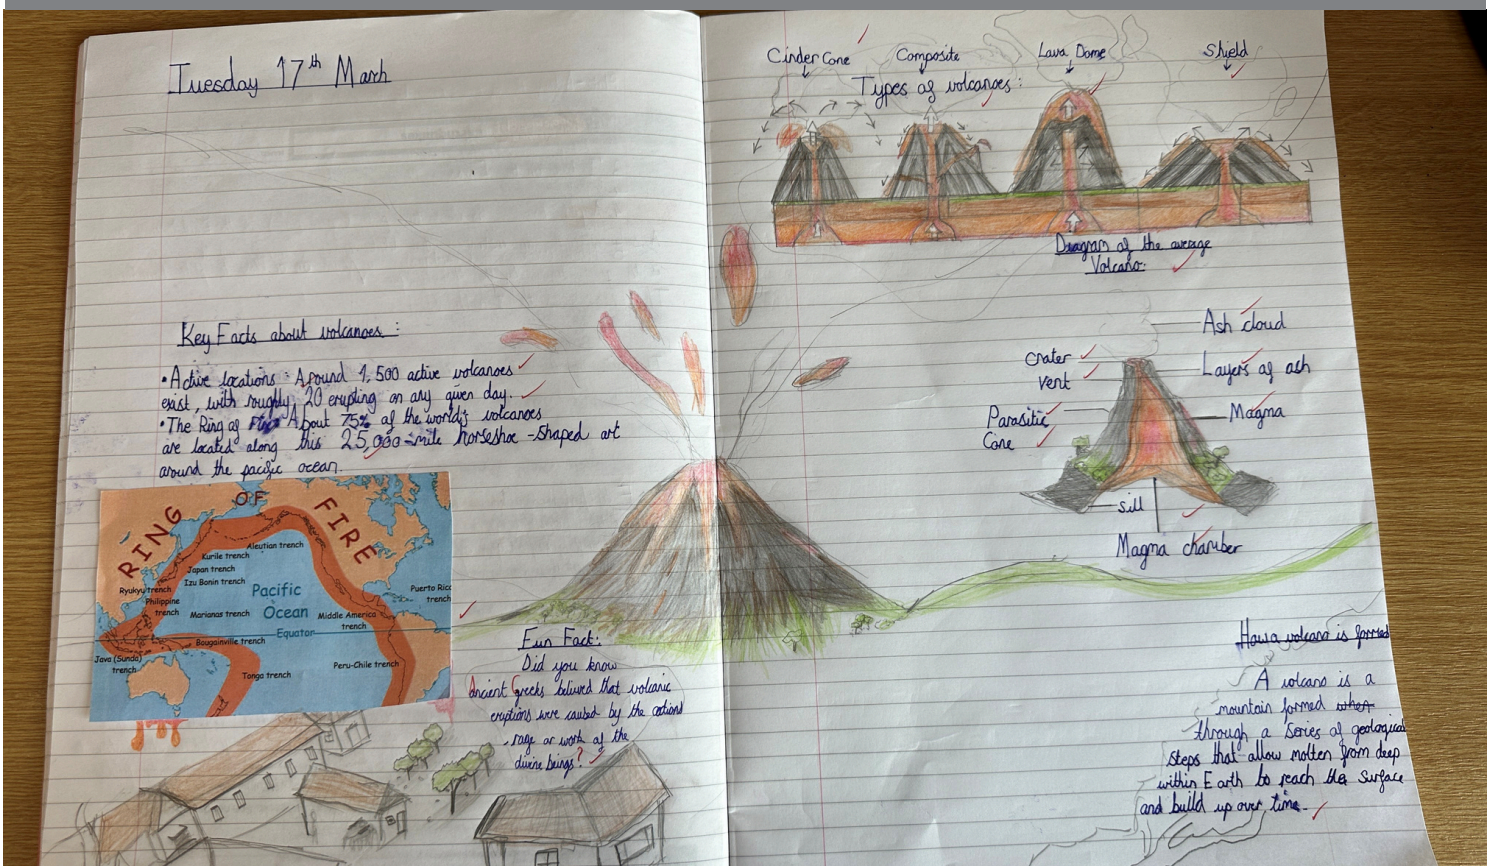 Tuesday 17th March
Key Facts about volcanoes:
• Active locations: Around 1,500 active volcanoes
exist, with roughly 20 erupting on any given day.
• The Ring of Fire About 75% of the world's volcanoes
are located along this 25,000-mile horseshoe-shaped
around the pacific ocean.
RING OF FIRE
Aleutian trench
Kurile trench
Japan trench
Izu Bonin trench
Ryukyu trench
Philippine
trench
Marianas trench
Pacific
Ocean
Equator
Middle America
trench
Puerto Rico
trench
Bougainville trench
Java (Sunda)
trench
Tonga trench
Peru-Chile trench
Fun Fact:
Did you know
Ancient Greeks believed that volcanic
eruptions were caused by the
rage or work of the
divine beings?
Cinder Cone
Composite
Lava Dome
Shield
Types of volcanoes:
Diagram of the average
Volcano:
Ash cloud
Crater
Vent
Layers of ash
Parasitic
Cone
Magma
Sill
Magma chamber
How a volcano is formed
A volcano is a
mountain formed when
through a Series of geological
steps that allow molten from deep
within Earth to reach the surface
and build up over time.